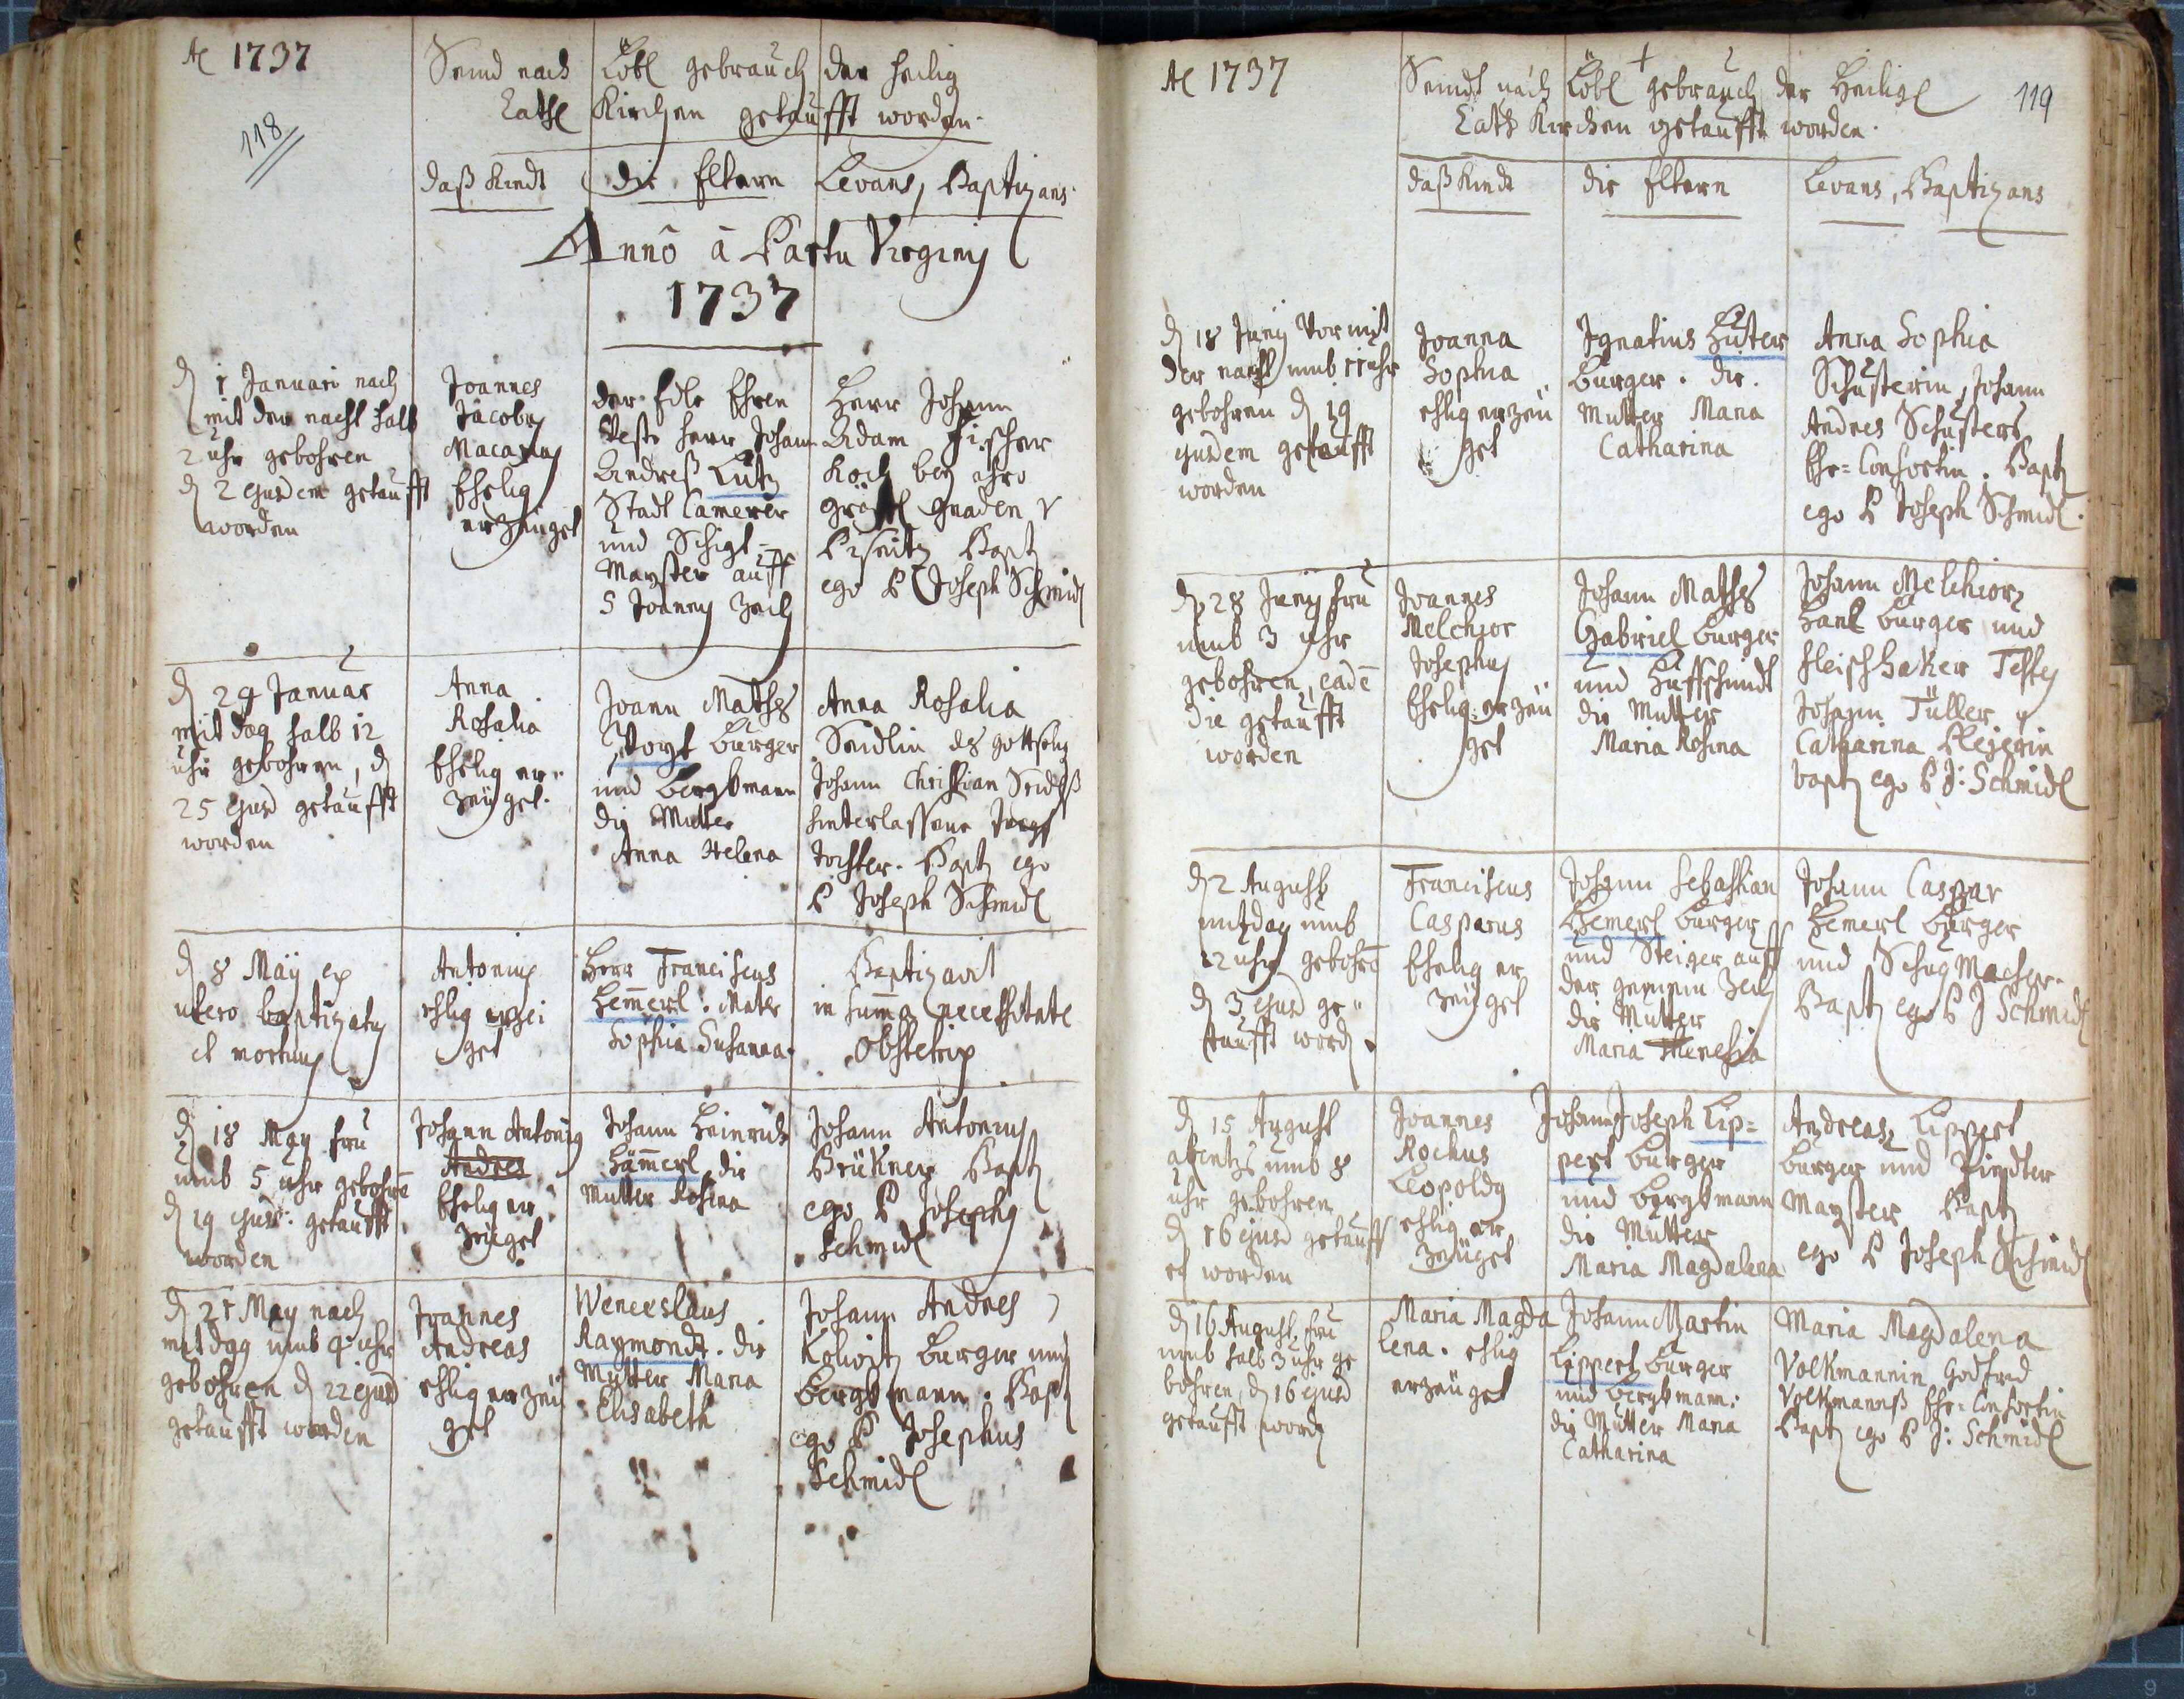 Ao 1737
118
Seind nach Löbl gebrauch der heilig
Cathl Kirchen getaufft worden.
daß Kindt
die Eltern
Levans, Baptizans.
Annô â Partu Virginis
1737
d 1 Januari nach
mit der nacht halb
2 uhr gebohren
d 2 ejusdem getaufft
worden
Joannes
Jacobus
Macarius
Ehelig
erzeuget
der Edle Ehren
Veste herr Johann
Andreß Lutz
Stadt Camerer
und Schigt-
Mayster auff
S Joannis Zech
Herr Johann
Adam Fischer
Koch bey ihro
Gnaden v
Bapt
ego P Joseph Schmidl
d 24 Januar
mit dag halb 12
uhr gebohren, d
25 Ejusd getaufft
worden
Anna
Rosalia
Ehelig er-
zeuget.
Joann Mathes
Voyt burger
und bergkmann
die Mutter
Anna Helena
Anna Rosalia
Seidlin des gottselig
Johann Christian Seidlß
hinterlassene Jungf
Tochter. Bapt ego
P Joseph Schmidl
d 8 Maÿ ex
utero baptizatus
et mortuus
Antonius
ehlig erzei
get
Herr Franciscus
Hem̄erl. Mater
Sophia Susanna.
Baptizavit
in sum̄a necessitate
Obstetrix
d 18 May fru
umb 5 uhr gebohrē
d 19 ejusd: getaufft
worden
Johann Antonig
Andres
Ehelig er
zeuget
Johann Heinrich
Häm̄erl die
Mutter Rosina
Johann Antonius
Brükner Bapt
ego P Josephg
Schmidl
d 21 May nach
mitdag umb 4 uhr
gebohren d 22 ejusd
getaufft worden
Joannes
Andreas
ehlig erzeu
get
Wenceslaus
Raymondt. die
Mutter Maria
Elisabeth
Johann Andres
burger und
bergkmann. Bapt
ego P Josephus
Schmidl
Ao 1737
119
Seindt nach Löbl gebrauch der Heilige
Cath Kirchen getaufft worden.
daß Kindt
die Eltern
Levans, Baptizans
d 18 Junij Vor mit
der nacht umb 11 uhr
gebohren d 19
ejusdem getaufft
worden
Joanna
Sophia
ehlig erzeu
get
Ignatius Huter
burger. die.
Mutter Maria
Catharina
Anna Sophia
Schusterin, Johann
Andres Schusters
Ehe=Consortin. Bapt
ego P Joseph Schmidl.
d 28 Junij fru
umb 3 uhr
gebohren, eadē
die getaufft
worden
Joannes
Melchior
Josephus
Ehelig erzeu
get
Johann Mathes
Gabriel burger
und Huffschmidt
die Mutter
Maria Rosina
Johann Melchior
Hank burger und
fleischhaker Testes
Johann Tüller
Catharina
bapt ego P J: Schmidl
d 2 August
mitdag umb
12 uhr gebohrē
d 3 ejusd ge-
taufft word
Franciscus
Casparus
Ehelig er
zeuget
Johann Sebastian
Hemerl burger
und Steiger auff
der gemein Zech
die Mutter
Maria Theresia
Johann Caspar
Hemerl burger
und SchugMacher.
Bapt ego P J Schmidl
d 15 August
abentzs umb 8
uhr gebohren
d 16 ejusd getauff
et worden
Joannes
Rochus
Leopoldg
ehlig er
zeuget
Johann Joseph Lip=
pert burger
und bergkmann
die Mutter
Maria Magdalena
Andreas Lippert
burger und
Mayster Bapt
ego P Joseph Schmidl
d 16 August fru
umb halb 3 uhr ge
bohren, d 16 ejusd
getaufft word
Maria Magda
lena. ehlig
erzeuget
Johann Martin
Lippert burger
und bergkmann:
die Mutter Maria
Catharina
Maria Magdalena
Volkmannin Godfrid
Volkmannß Ehe=Consortin
Bapt ego P J: Schmidl